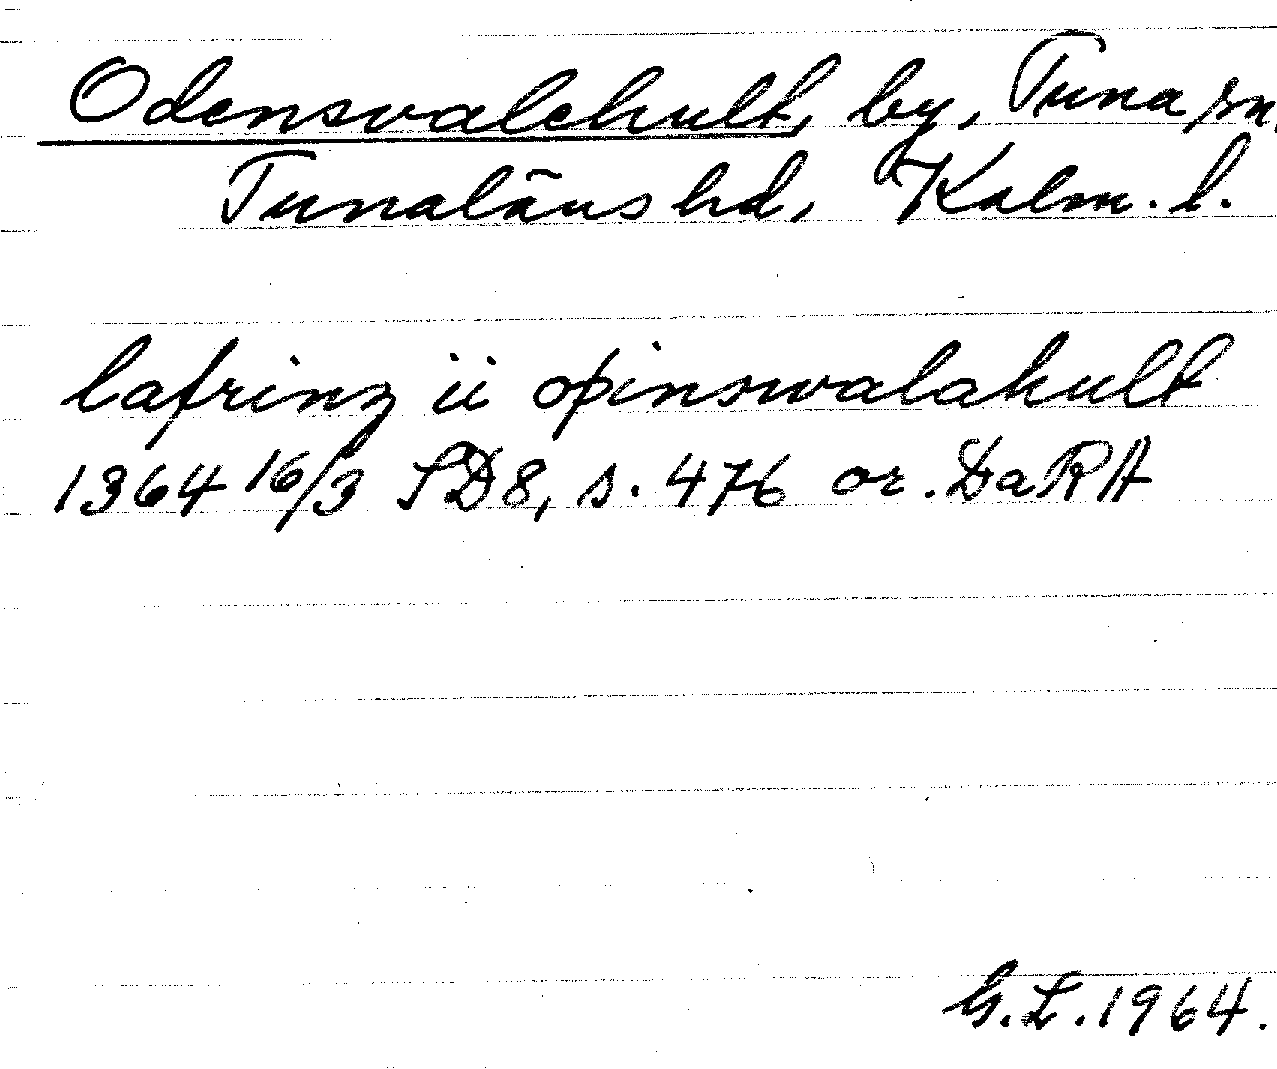 Odensvalehult, by, Tuna sn,
Tunaläns hd, Kalm. l.
lafrinz ii opinswalahult
1364 16/3 SD8, s. 476 or. DaRA
G.L.1964.